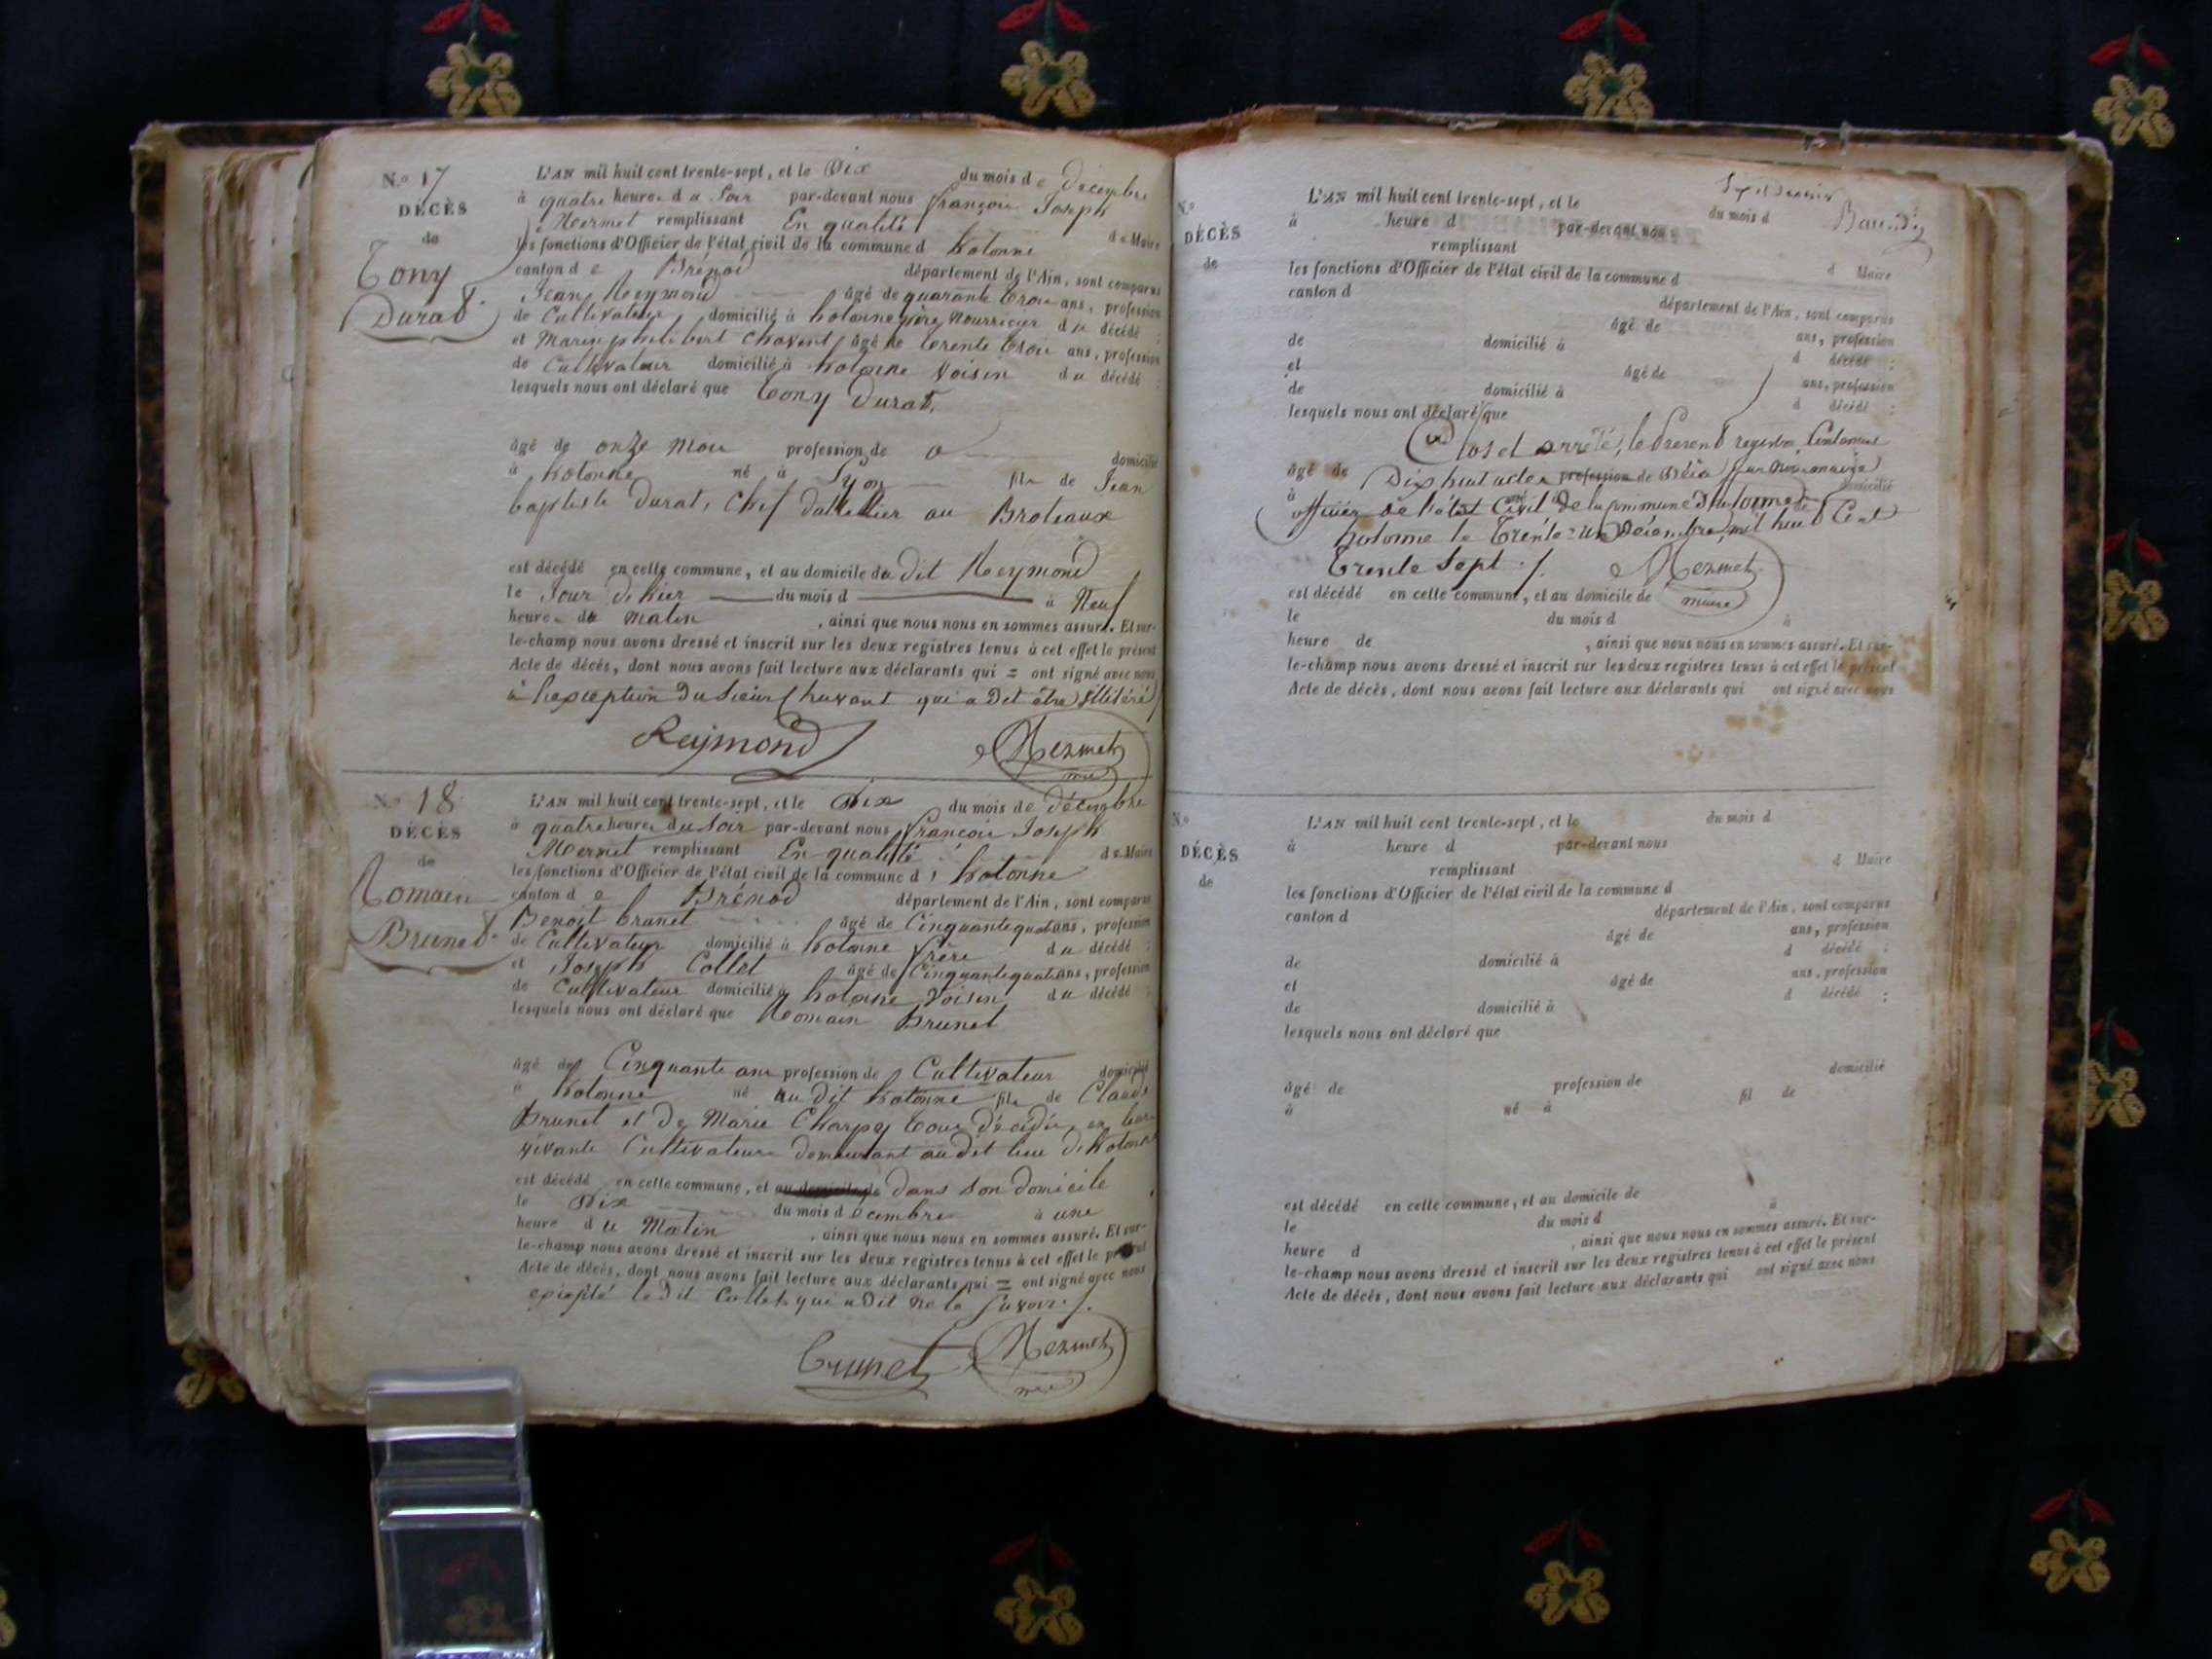 N.º 17
DÉCÈS
de
Tony
Durat.
L'AN mil huit cent trente-sept, et le Dix du mois de décembre
à quatre heures du Soir par-devant nous françois Joseph
Mermet remplissant En qualité de Maire
les fonctions d'Officier de l'état civil de la commune d hotonne
canton de Brénod département de l'Ain, sont comparus
Jean Reymond âgé de quarante trois ans, profession
de Cultivateur domicilié à hotonne père nourricier du décédé ;
et Marin philibert Chavent âgé de trente trois ans, profession
de Cultivateur domicilié à hotonne Voisin du décédé ;
lesquels nous ont déclaré que tony Durat,
âgé de onze mois profession de domicilié
à hotonne né à Lyon fils de Jean
baptiste Durat, Chef dattellier au Broteaux
est décédé en cette commune, et au domicile du dit Reymond
le Jour d'hier du mois d à Neuf
heures du matin, ainsi que nous nous en sommes assuré. Et sur-
le-champ nous avons dressé et inscrit sur les deux registres tenus à cet effet le présent
Acte de décès, dont nous avons fait lecture aux déclarants qui = ont signé avec nous
à l'exception du Sieur Chavant qui a Dit être illitéré
Reymond Mermet
N.º 18
DÉCÈS
de
Romain
Brunet.
L'AN mil huit cent trente-sept, et le Dix du mois de décembre
à quatre heures du Soir par-devant nous françois Joseph
Mermet remplissant En qualité de Maire
les fonctions d'Officier de l'état civil de la commune d hotonne
canton de Brénod département de l'Ain, sont comparus
Benoit brunet âgé de Cinquante quat ans, profession
de Cultivateur domicilié à hotonne frère du décédé ;
et Joseph Collet âgé de Cinquante quat ans, profession
de Cultivateur domicilié à hotonne Voisin du décédé ;
lesquels nous ont déclaré que Romain Brunet
âgé de Cinquante ans profession de Cultivateur domicilié
à hotonne né au dit hotonne fils de Claude
Brunet et De Marie Charpy tous décédés, en leur
vivants Cultivateurs demeurant au dit lieu de hotonne
est décédé en cette commune, et au domicile de dans son domicile
le Dix du mois decembre à une
heure du Matin, ainsi que nous nous en sommes assuré. Et sur-
le-champ nous avons dressé et inscrit sur les deux registres tenus à cet effet le présent
Acte de décès, dont nous avons fait lecture aux déclarants qui = ont signé avec nous
excepté le dit Collet qui a Dit ne le savoir.
brunet Mermet
N.º
DÉCÈS
de
L'AN mil huit cent trente-sept, et le du mois d
à heure d par-devant nous
remplissant d Maire
les fonctions d'Officier de l'état civil de la commune d
canton d département de l'Ain, sont comparus
âgé de ans, profession
de domicilié à d décédé ;
et âgé de ans, profession
de domicilié à d décédé ;
lesquels nous ont déclaré que
Clos et arrêté, le présent registre, Contenant
âgé de Dix huit actes profession de Décès par nous maire
à domicilié
officier de l'état Civil de la commune d'hotonne
hotonne le trente un Décembre mil huit Cent
trente Sept Mermet
maire
est décédé en cette commune, et au domicile de
le du mois d à
heure de , ainsi que nous nous en sommes assuré. Et sur-
le-champ nous avons dressé et inscrit sur les deux registres tenus à cet effet le présent
Acte de décès, dont nous avons fait lecture aux déclarants qui ont signé avec nous
N.º
DÉCÈS
de
L'AN mil huit cent trente-sept, et le du mois d
à heure d par-devant nous
remplissant d Maire
les fonctions d'Officier de l'état civil de la commune d
canton d département de l'Ain, sont comparus
âgé de ans, profession
de domicilié à d décédé ;
et âgé de ans, profession
de domicilié à d décédé ;
lesquels nous ont déclaré que
âgé de profession de domicilié
à né à fil de
est décédé en cette commune, et au domicile de
le du mois d à
heure d , ainsi que nous nous en sommes assuré. Et sur-
le-champ nous avons dressé et inscrit sur les deux registres tenus à cet effet le présent
Acte de décès, dont nous avons fait lecture aux déclarants qui ont signé avec nous